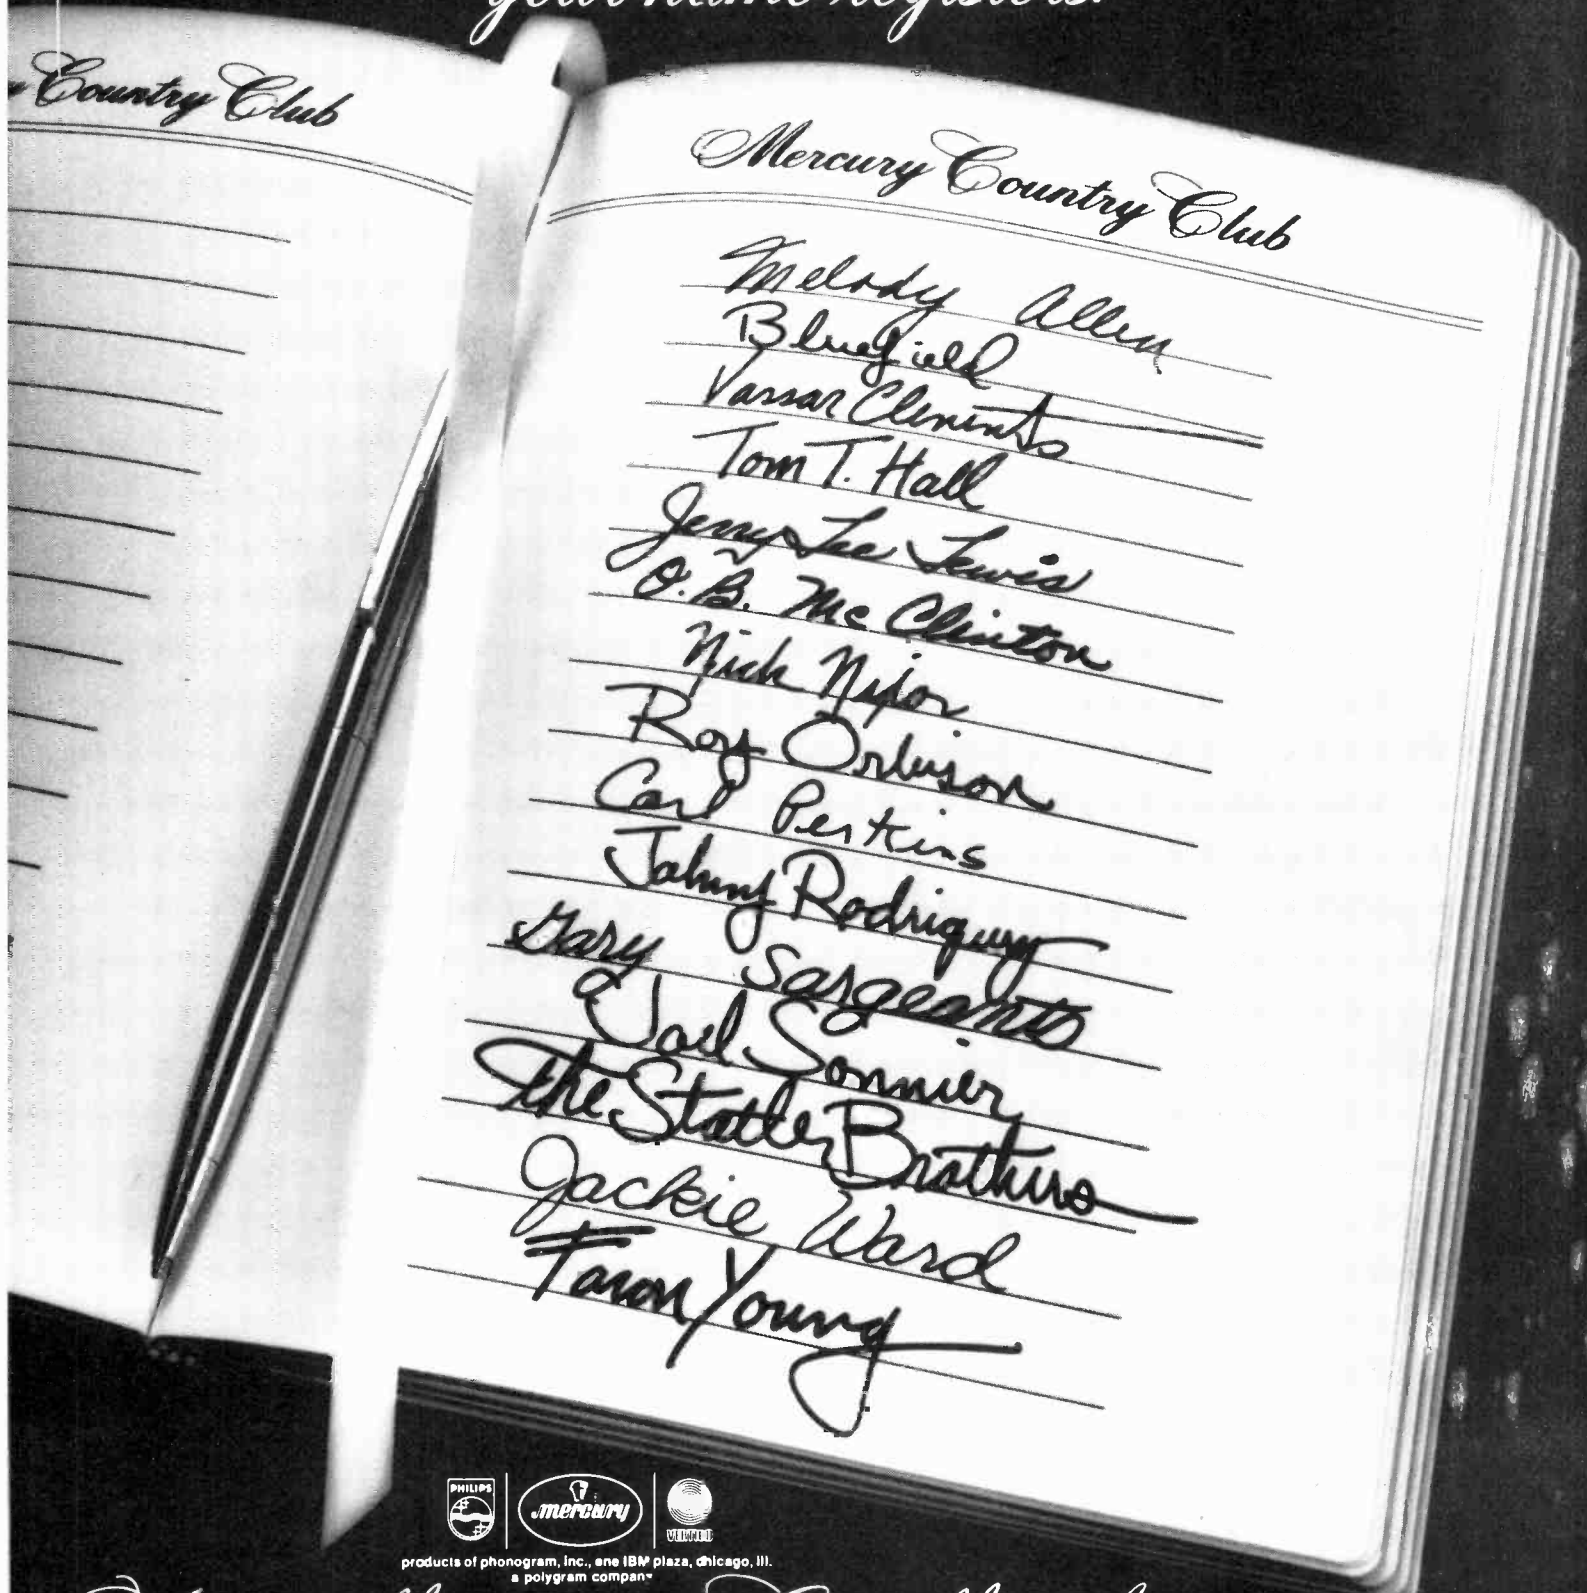 your name registers.
Country Club
Mercury Country Club
Melody Allen
Bluefield
Vassar Clements
Tom T. Hall
Jerry Lee Lewis
O.B. McClinton
Nick Nixon
Roy Orbison
Carl Perkins
Johnny Rodriguez
Gary Sargeants
Joel Sonnier
The Statler Brothers
Jackie Ward
Faron Young
PHILIPS
mercury
VERTIGO
products of phonogram, inc., one IBM plaza, chicago, ill.
a polygram company